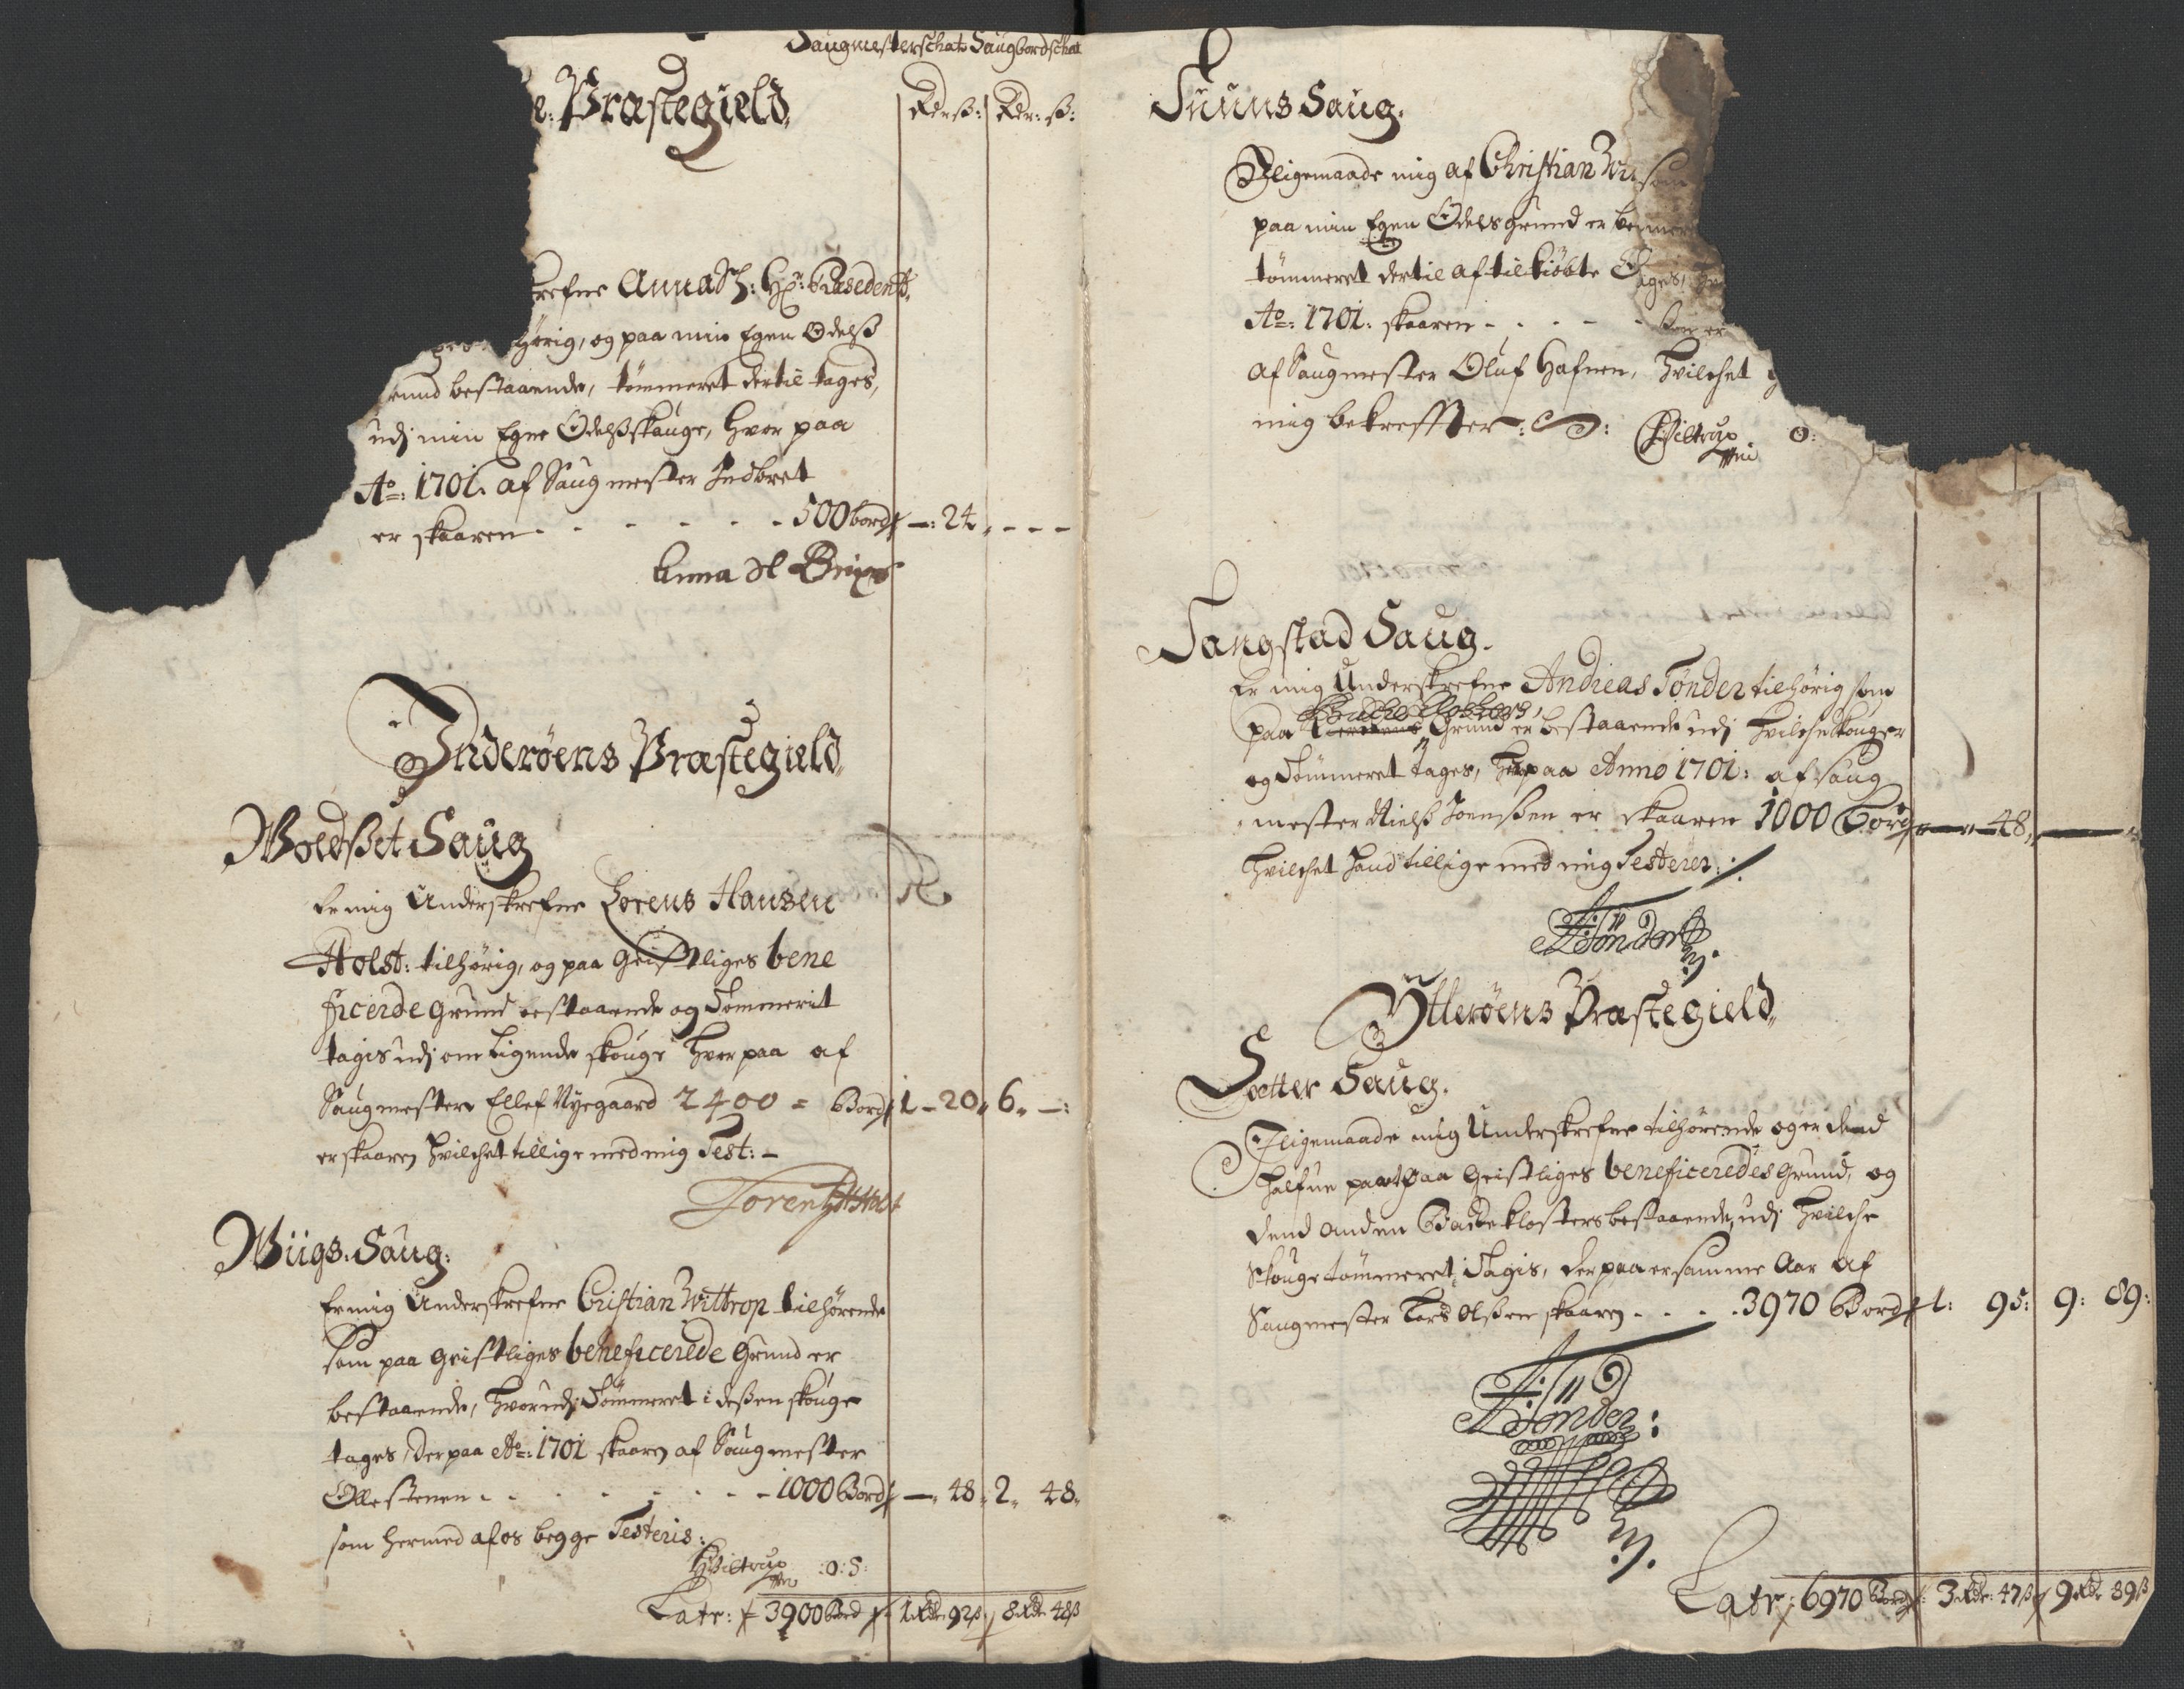 Saugmesterschat Saugbordschat
e: Præstegield
Rdr ß: Rdr: ß:
refne Anna Sl: Hr: Præsedent
hørig, og paa min Egen Odelß
rund bestaaende, tømmeret dertil tages,
udj min Egne Odelßskauge, hvor paa
Ao: 1701. af Saugmester Indbret
er skaaren - - - - - - 500 bord — : 24 „ - - -
Anna Sl Brix
Inderøens Præstegield
Woldßet Saug
Er mig Underskrefne Lorens Hansen
Holst: tilhørig, og paa Geistliges bene
ficerde grund bestaaende og Tømmerit
tagis udj om Ligende skouge hvor paa af
Saugmestere Ellef Nyegaard 2400 = Bord 1 - 20 „ 6 „ — :
er skaaren hvilchet tillige med mig Test: —
Lorentz HHolst
Wiigs: Saug:
Er mig Underskrefne Cristian Wittrop tilhørende
som paa Geistliges beneficerede Grund er
bestaaende, hvorudj Tømmeret i deßen skouge
tages, Der paa Ao: 1701 skaaren af Saugmester
Olle Stenen - - - - - - - 1000 Bord — „ 48 „ 2 „ 48 „
som hermed af os begge Testeris:
CWiltrup :O:S:
Latr: 3900 Bord 1 Rdr 92 ß 8 Rdr 48 ß
Tuuns Saug.
Iligemaade mig af Christian Wi som
paa min Egen Odelsgrund er
tømmeret dertil af tilkiøbte
Ao: 1701: skaaren - - - - -
af Saugmester Oluf Hafnen, hvilchet
mig bekreffter: CWiltrup O:
Tangstad Saug.
Er mig Underskrefne Andreas Tønder tilhørig som
Bache Closters,
paa Grund er bestaaende udj hvilche skouger
og Tømmeret tages, paa Anno 1701: af Saug
mester Nielß Joenßen er skaaren 1000 Bord — „ — 48 „ — „
hvilchet hand tillige med mig Testerer:
ATønder
Ytterøens Præstegield
Sætter Saug.
Iligemaade mig Underskrefne tilhørende og er dend
halfue part paa Geistliges beneficeredes Grund, og
dend anden Backe klosters bestaaende, udj hvilche
Skouge tømmeret Tagis, der paa er samme Aar af
Saugmester Lars Olßen skaaren - - - - 3970 Bord 1: 95: 9: 89:
ATønder:
Latr: 6970 Bord 3 Rdr: 47 ß 9 Rdr 89 ß